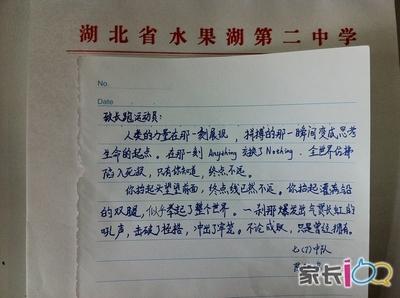 湖北省水果湖第二中学
No.
Date
致长跑运动员：
人类的力量在那一刻展现，拼搏的那一瞬间变成思考
生命的起点。在那一刻 Anything 变换了Nothing，全世界仿佛
陷入死寂，只有你知道，终点不远。
你抬起头望望前面，终点线已然不远。你抬起灌满铅
的双腿，似乎举起了整个世界。一刹那爆发出气贯长虹的
吼声，击破了桎梏，冲出了牢笼。不论成败，只是曾经拥有。
七(7)中队
家长100